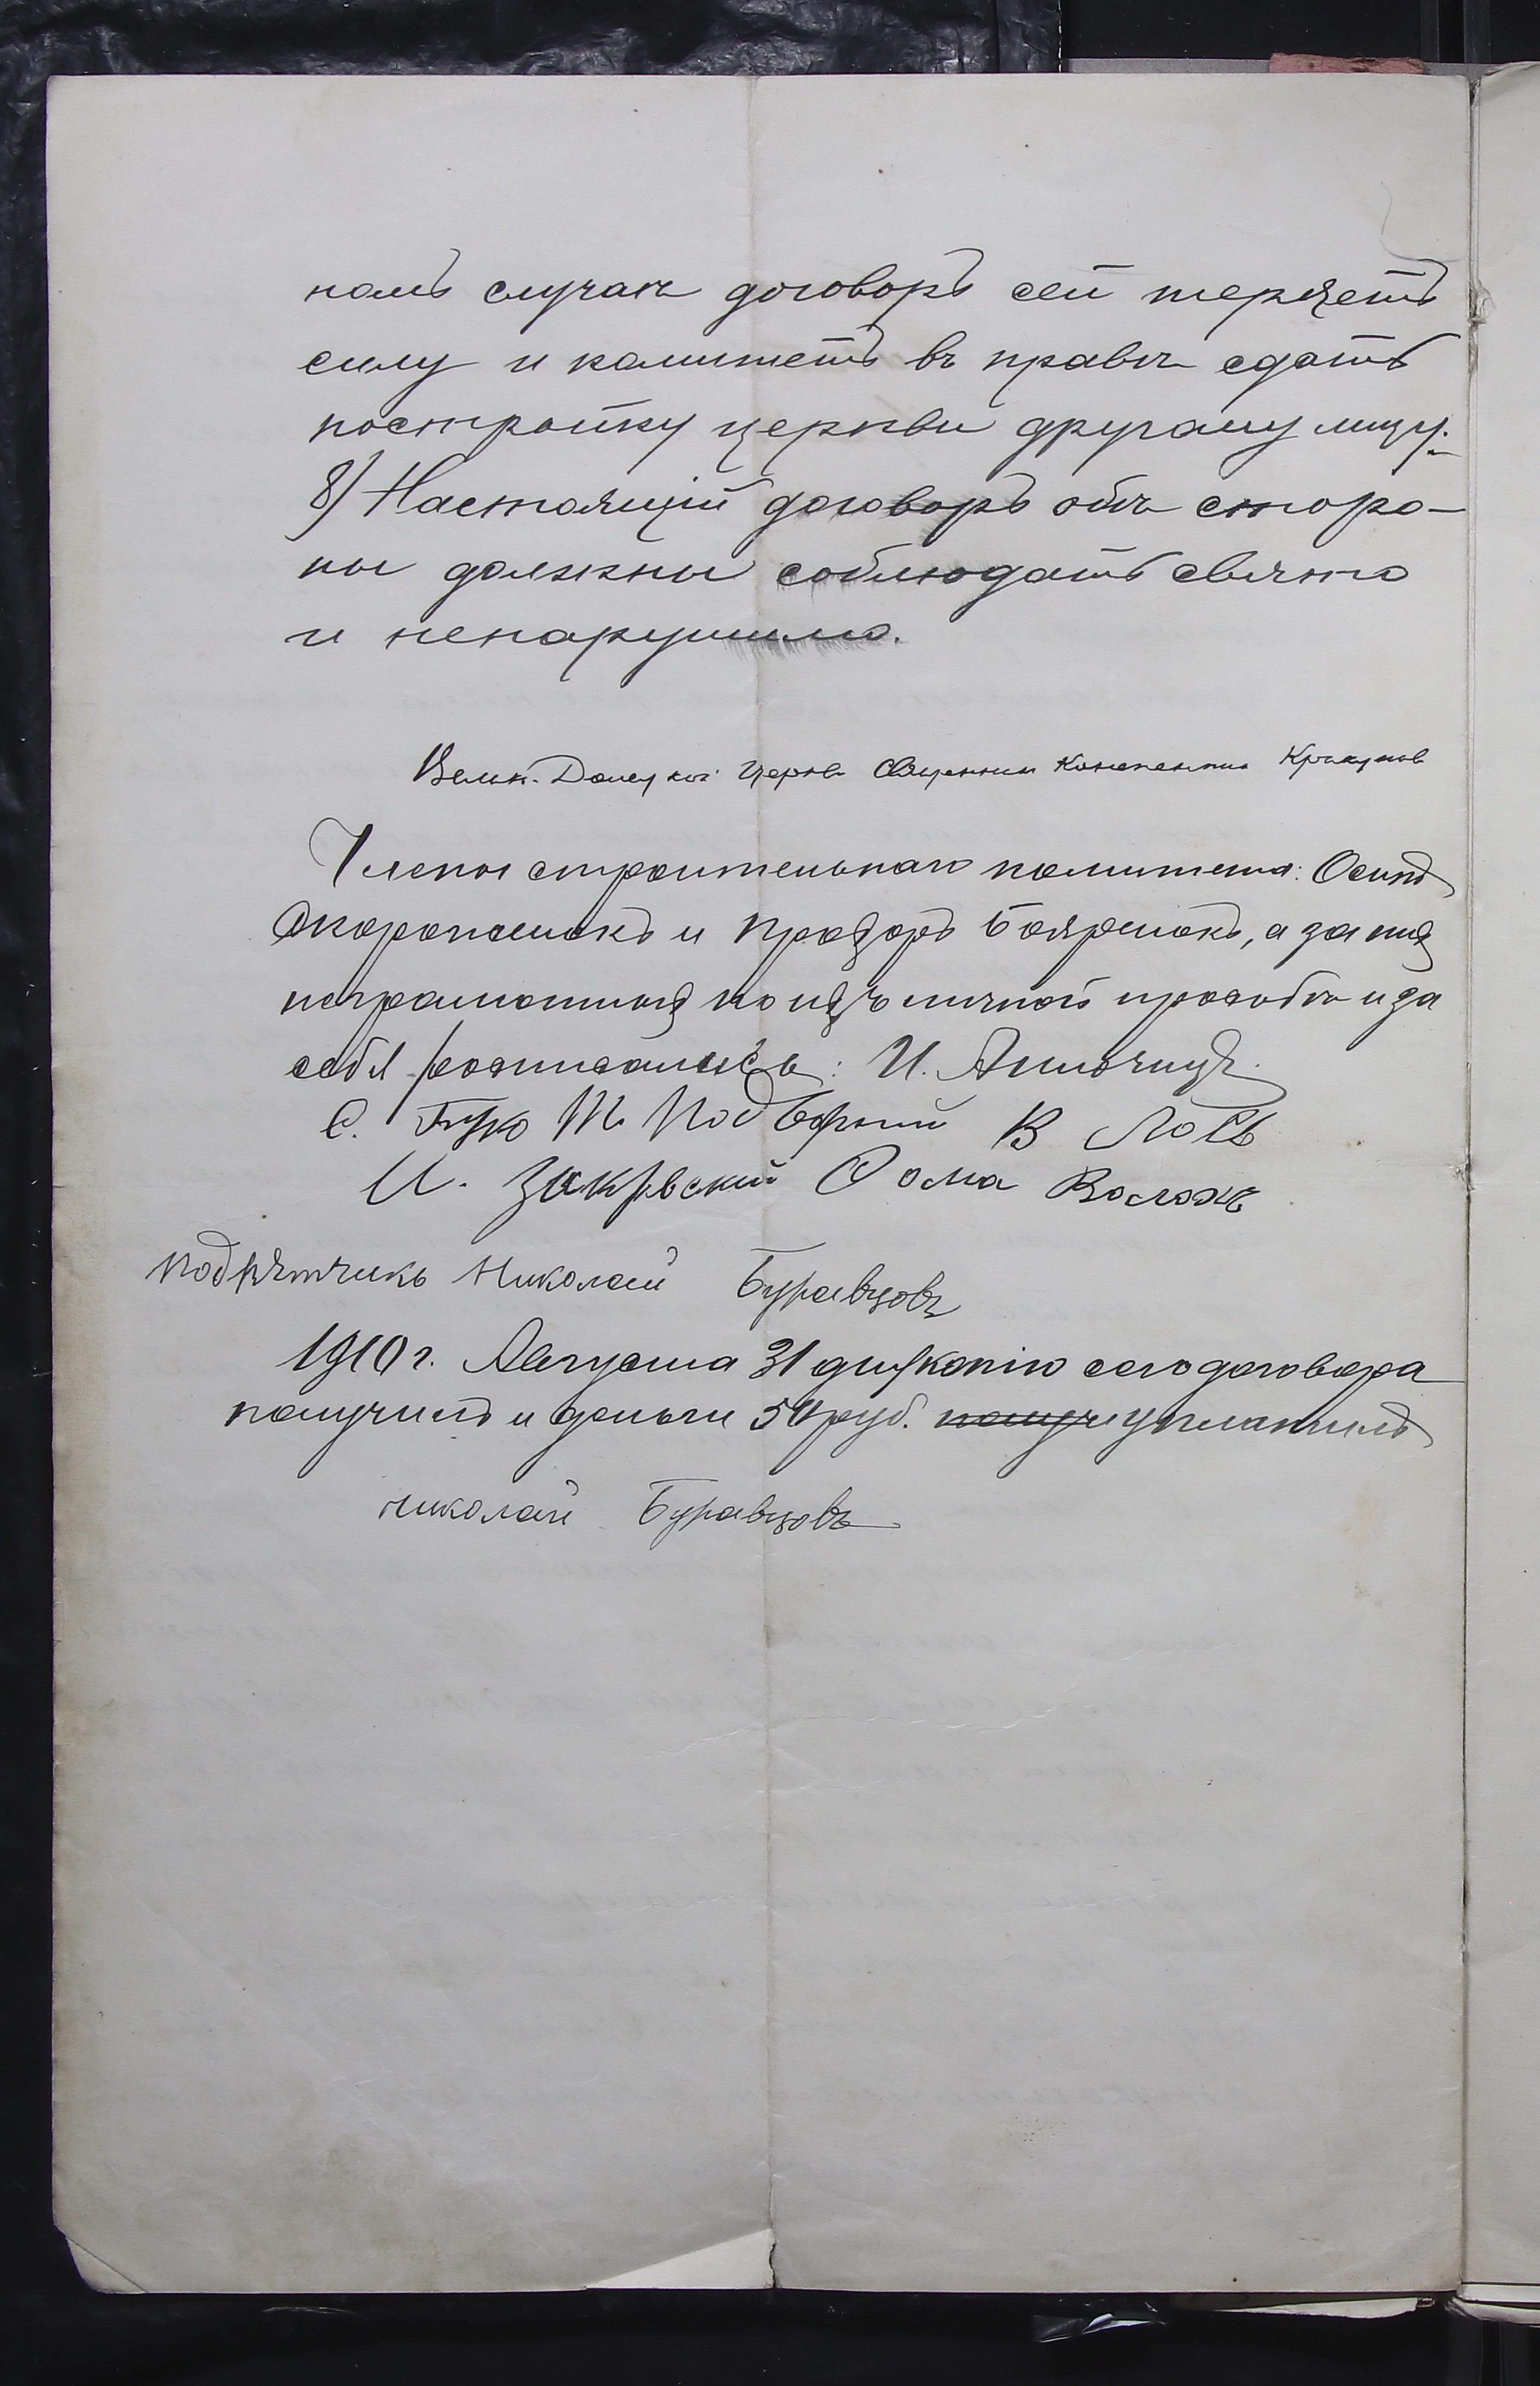 номъ случаѣ договоръ сей теряетъ
силу и комитетъ въ правѣ сдать
постройку церкви другому лицу.
8) Настоящій договоръ обѣ сторо-
ны должны соблюдать свято
и ненарушимо.
Велик. церкви Священник
Члены строительнаго комитета: Осипъ
и Боярчюкъ, а за них
неграмотных по их личной просьбѣ и за
себя росписались: И.
С. Гуко Подворный В Лось
И. Закревский Фома Волохъ
подрятчикъ Николай Буравцовъ
1910 г. Августа 31 дня копію сего договора
получилъ и деньги 50 руб. уплатилъ
николай Буравцовъ